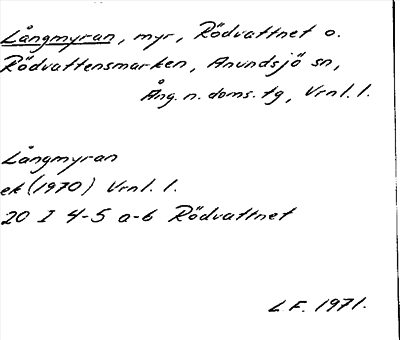 Långmyran, myr, Rödvattnet o.
Rödvattensmarken, Anundsjö sn,
Ång. n. doms. tg, Vrnl. l.
Långmyran
ek (1970) Vrnl. l.
20 I 4-5 a-b Rödvattnet
L F. 1971.